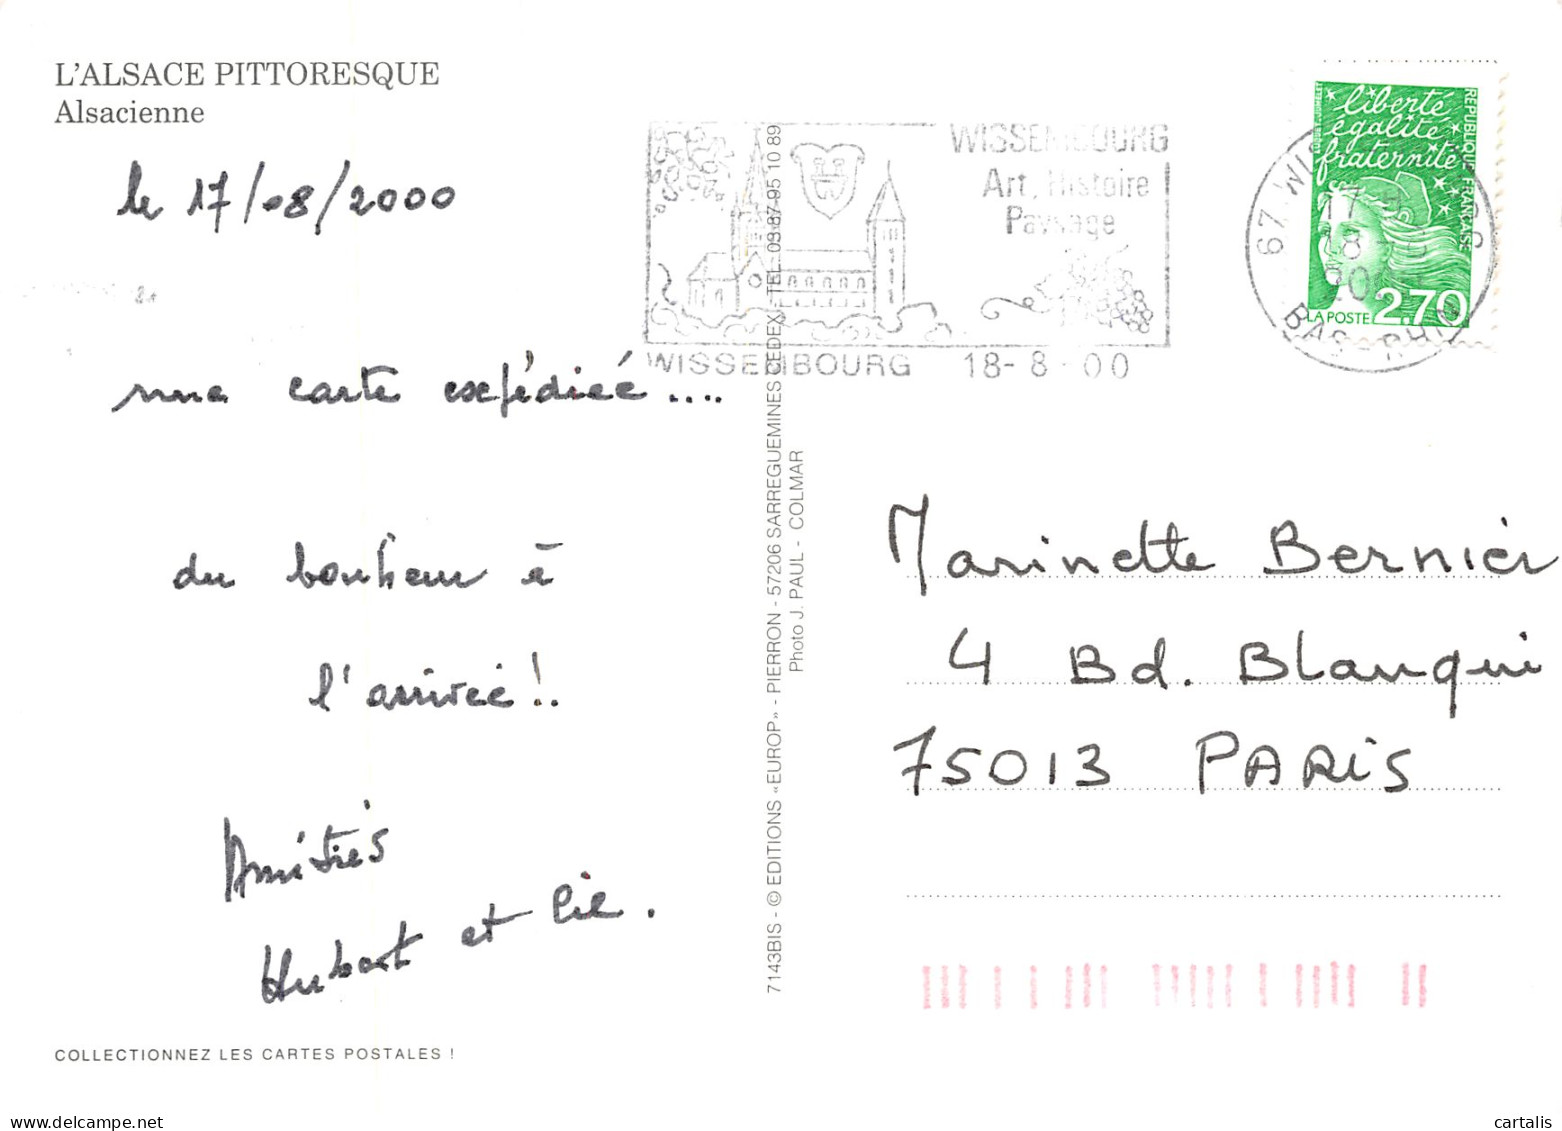 L'ALSACE PITTORESQUE
Alsacienne
le 17/08/2000
une carte expédiée....
du bonheur à
l'arrivée!.
Amitiés
Hubert et Cie.
COLLECTIONNEZ LES CARTES POSTALES !
7143BIS - © EDITIONS «EUROP» - PIERRON - 57206 SARREGUEMINES CEDEX - TEL. 03 87 95 10 89
Photo J. PAUL - COLMAR
WISSEMBOURG
Art, Histoire
Paysage
WISSEMBOURG 18-8-00
liberté
égalité
fraternité
REPUBLIQUE FRANÇAISE
LA POSTE 2,70
67
BAS-RHIN
Marinette Bernier
4 Bd. Blanqui
75013 PARIS
cartalis
www.delcampe.net